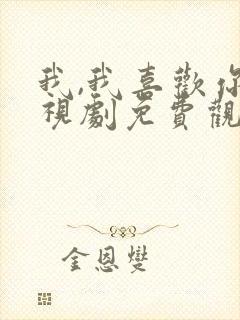 我,我喜歡你
視劇免費觀
金恩燮